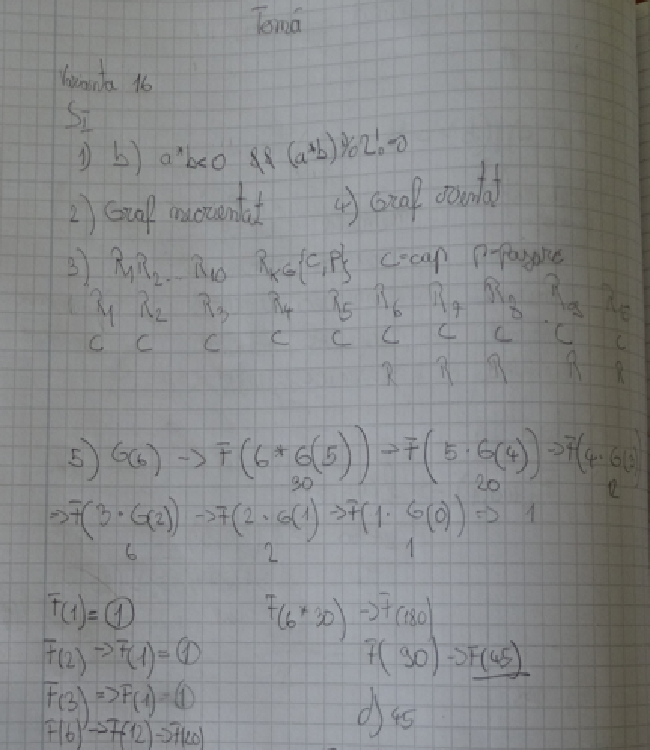 Temă
Varianta 16
SI
1) b) a*b<0 && (a*b)%2!=0
2) Graf neorientat 4) Graf orientat
3) R1R2.. R10 Rk∈{C,P} C=cap P-pajura
R1 R2 R3 R4 R5 R6 R7 R8 R9
C C C C C C C C C C
5) G(6) -> F(6*G(5)) -> F(5·G(4)) -> F(4·G(3)
30 20
=> F(3·G(2)) -> F(2·G(1) -> F(1·G(0)) => 1
6 2 1
F(1)=1 F(6*30) -> F(180)
F(2) -> F(1)=1 F(90) -> F(45)
F(3) => F(1)=1
d) 45
F(6) -> F(12) ->